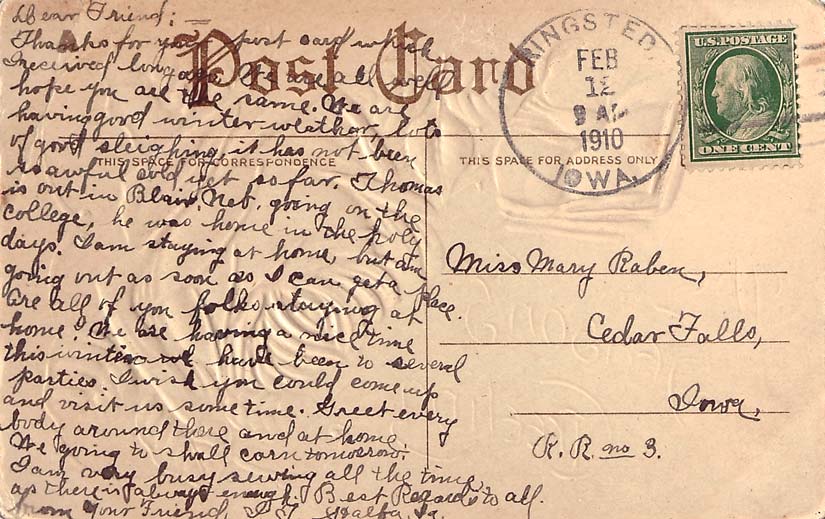 Dear Friend: =
Thanks for your post card which
I received long ago. We are all well
hope you are the same. We are
having good winter weather, lots
of good sleighing it has not been
so awful cold yet so far. Thomas
is out in Blair, Neb. going on the
college, he was home in the holy
days. I am staying at home, but am
going out as soon as I can get a place.
Are all of you folks staying at
home? We are having a nice time
this winter we have been to several
parties. I wish you could come up
and visit us some time. Greet every
body around there and at home
We going to shell corn tomorrow.
I am very busy sewing all the time,
as there is always enough. Best Regards to all.
from Your Friend, Ia.
Post Card
THIS SPACE FOR CORRESPONDENCE
THIS SPACE FOR ADDRESS ONLY
RINGSTED,
FEB
12
9 A
1910
IOWA.
U.S. POSTAGE
ONE CENT
Miss Mary Raben,
Cedar Falls,
Iowa,
R. R. no 3.